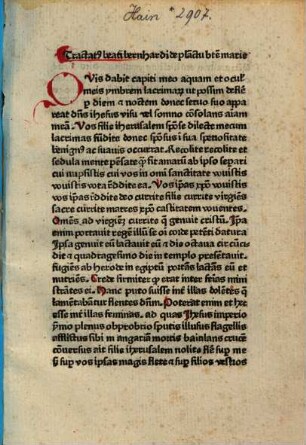 Hain * 2907.
Tractatꝰ beati bernhardi de plāctu btē marie
QVis dabit capiti meo aquam et ocul
meis ymbrem lacrimaꝝ ut possim defle
re p diem ⁊ noctem donec seruo suo appa
reat dn̄s ihesus visu vel somno cōsolans aiam
meā. Vos filie iherusalem spōse dilecte mecum
lacrimas fūdite donec spōsus in sua speciositate
benignꝰ ac suauis occurrat. Recolite recolite et
sedula mente pēsate q̄ fit amarū ab ipso separi
cui nupsistis cui vos in omi sanctitate vouistis
vouistis vota ꝛēddite ea. Vos ip̄as xp̄o vouistis
vos ip̄as īddite ideo currite filie currite virgīes
sacre currite matres xp̄o castitatem vouentes.
Om̄es ad virginē currite q̄ genuit cristū. Ip̄a
enim portauit regē illū se oi corde petēti datura
Ipsa genuit eū lactauit eū ⁊ die octaua circūcidit
dit a quadragesimo die in templo presētauit.
fugiēs ab herode in egiptū portās lactās eū et
nutriēs. Crede firmiter q̄ erat inter suas mini
stātes ei. Hanc puto fuisse int̄ illas dolētes q̄
lamētabātur flentes dūm. Poterat enim et hec
esse int̄ illas feminas. ad quas ihesus imperio
ymo plenus obprobrio sputis illusus flagellis
afflictus sibi in angariam mortis baiulans cru
cē conuersus ait filie iherusalem nolite flē sup me
sʒ sup vos ipsas magis flete ⁊ sup filios vestros